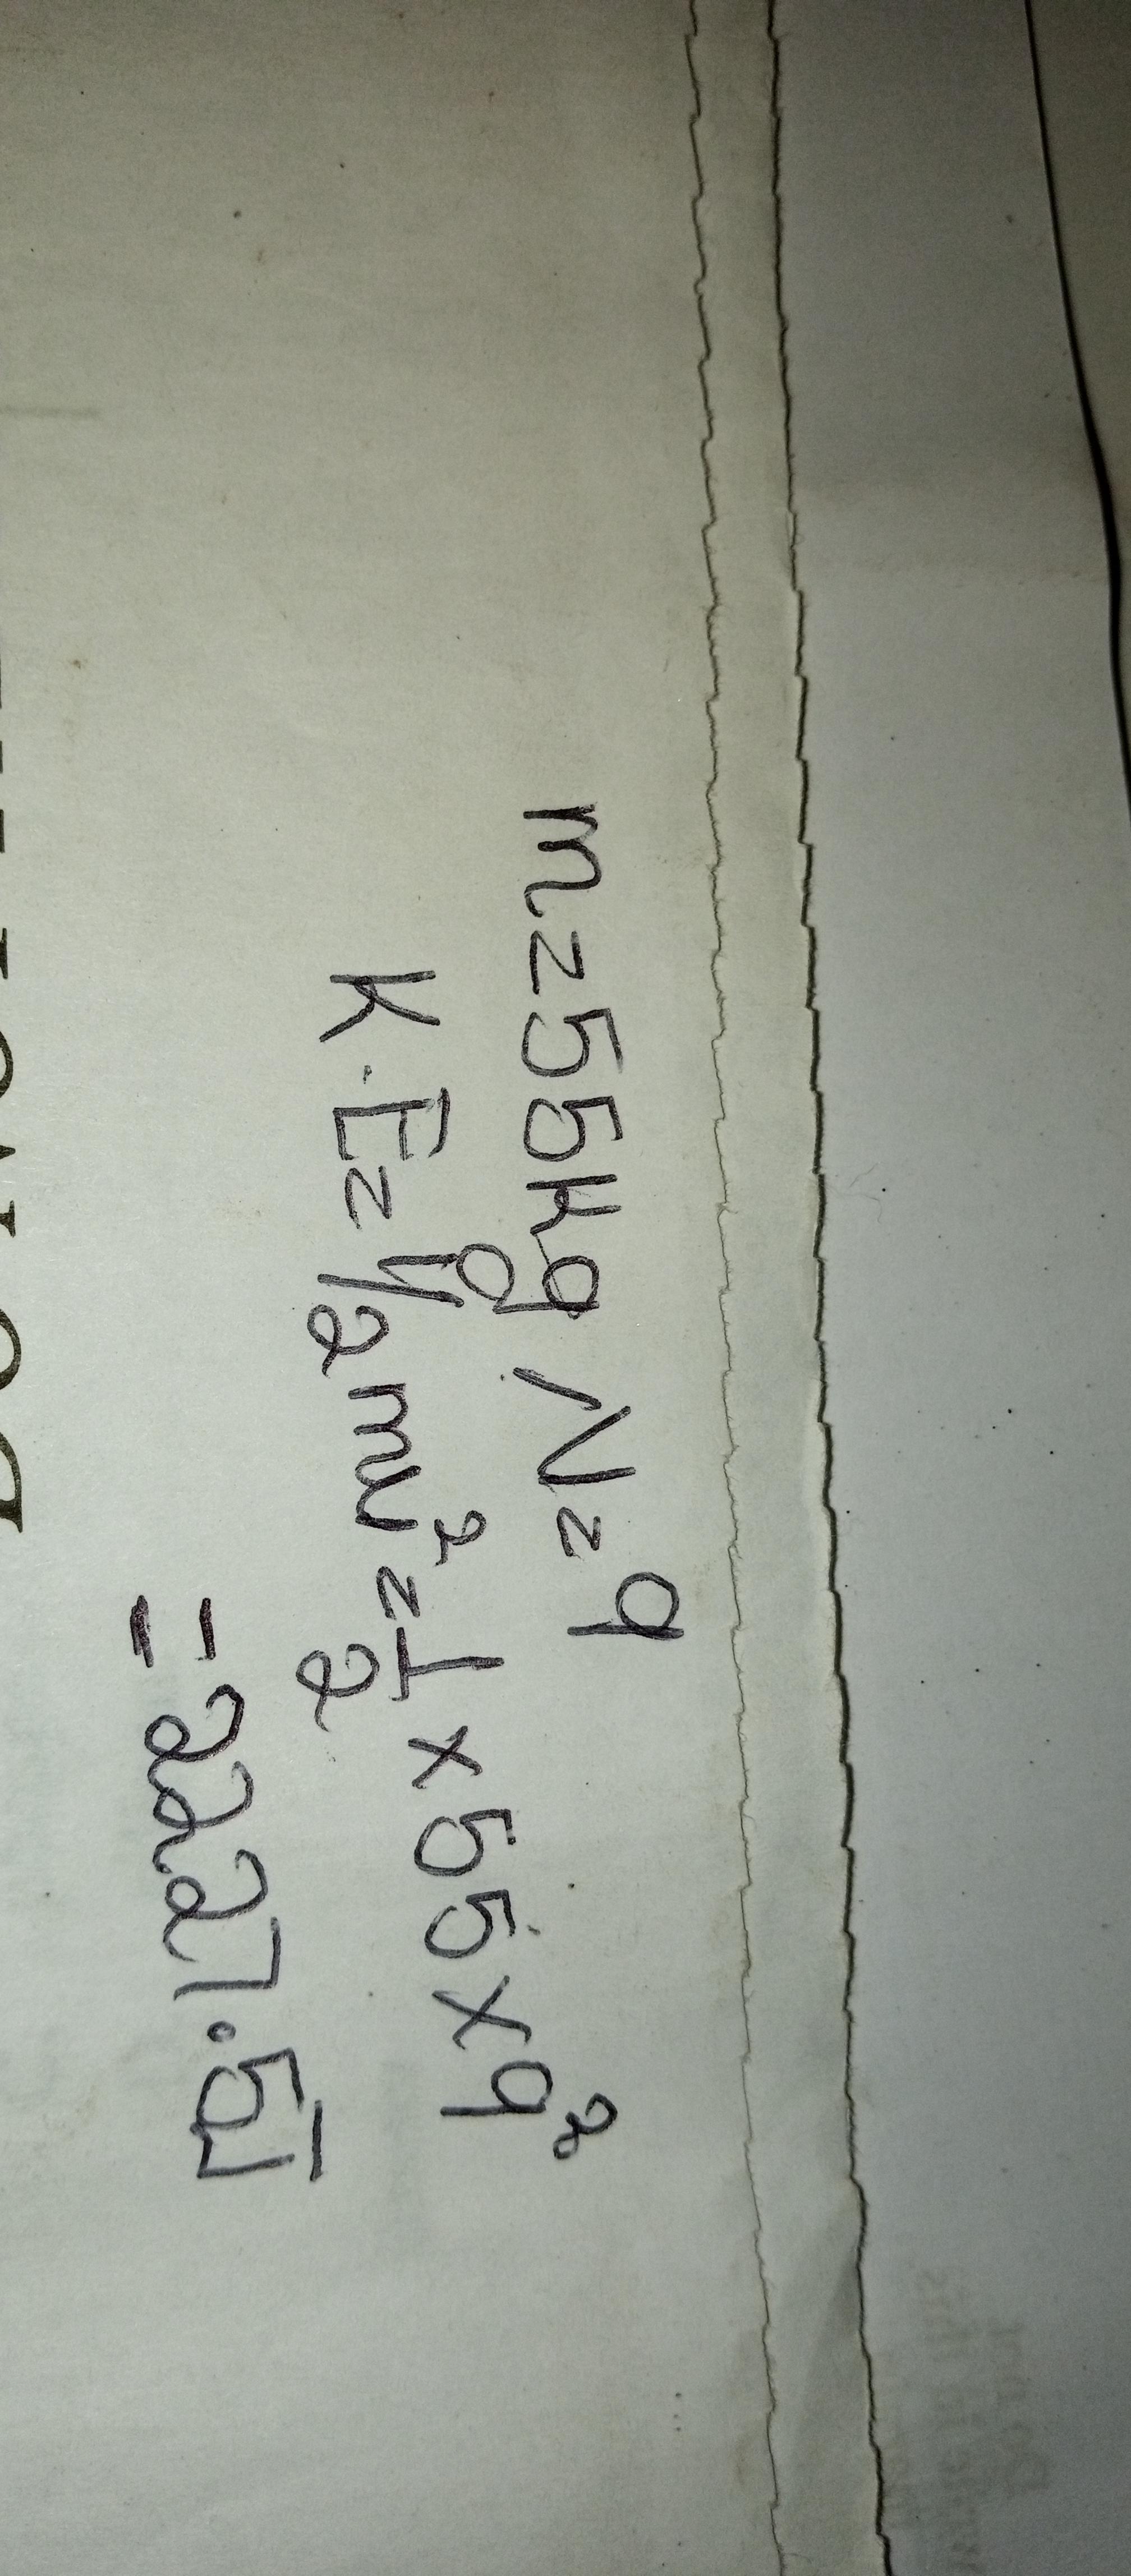 m=55kg V=9
K.E=1/2mv²=1/2×55×9²
=2227.5J